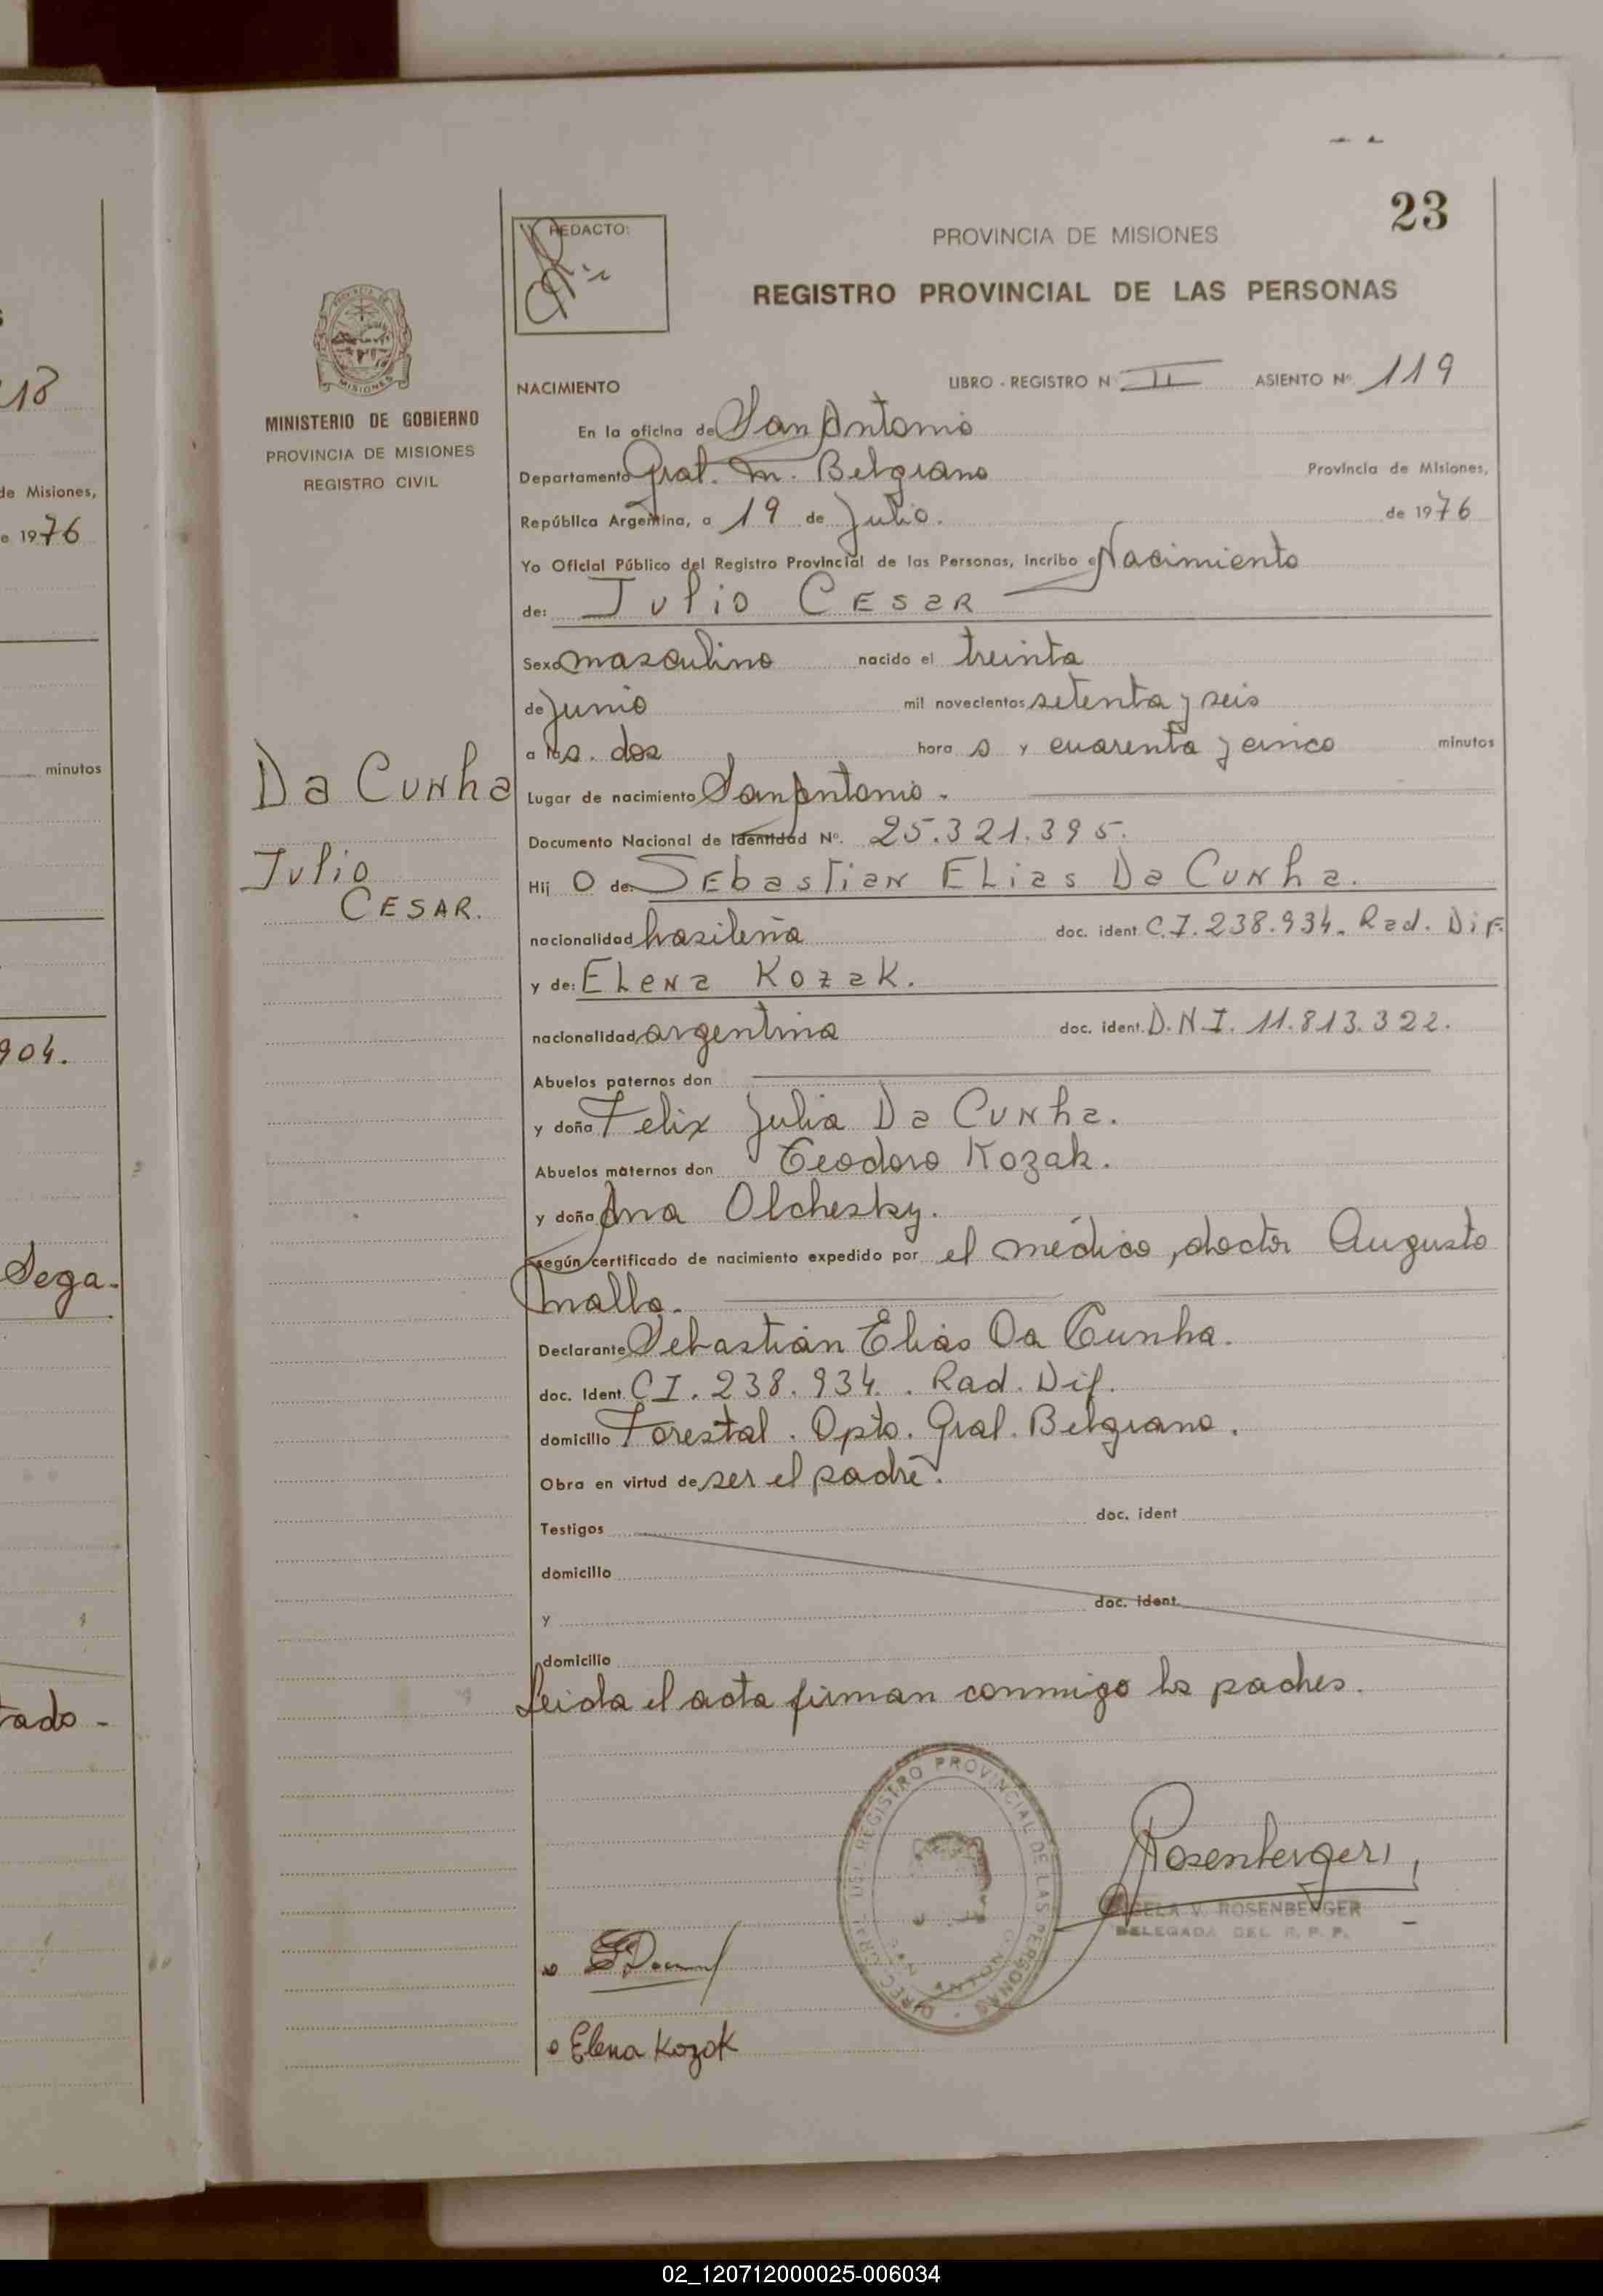 23
REDACTO:
PROVINCIA DE MISIONES
REGISTRO PROVINCIAL DE LAS PERSONAS
PROVINCIA DE
MISIONES
MINISTERIO DE GOBIERNO
PROVINCIA DE MISIONES
REGISTRO CIVIL
NACIMIENTO LIBRO - REGISTRO N II ASIENTO Nº 119
En la oficina de San Antonio
Departamento Gral. M. Belgrano Provincia de Misiones,
República Argentina, a 19 de Julio. de 1976
Yo Oficial Público del Registro Provincial de las Personas, incribo el Nacimiento
de: Julio CESAR
Sexo masculino nacido el treinta
de junio mil novecientos setenta y seis
a las. dos hora s y cuarenta y cinco minutos
Da Cunha
Lugar de nacimiento San Antonio.
Documento Nacional de Identidad Nº. 25.321.395.
Julio
CESAR.
Hij o de: Sebastian Elias Da Cunha.
nacionalidad brasileña doc. ident. C.I. 238.934. Rad. Dif.
y de: Elena Kozak.
nacionalidad argentina doc. ident. D.N.I. 11.813.322.
Abuelos paternos don
y doña Felix Julia Da Cunha.
Abuelos maternos don Teodoro Kozak.
y doña Ana Olchesky.
según certificado de nacimiento expedido por el médico, doctor Augusto
Mallo.
Declarante Sebastián Elías Da Cunha.
doc. Ident. CI. 238.934. Rad. Dif.
domicilio Forestal. Dpto. Gral. Belgrano.
Obra en virtud de ser el padre.
Testigos doc. ident
domicilio
y doc. ident.
domicilio
Leida el acta firman conmigo los padres.
REGISTRO PROVINCIAL DE LAS PERSONAS
SAN ANTONIO
Rosenberger
V. ROSENBERGER
DELEGADA DEL R. P. P.
Elena Kozak
18
de Misiones,
e 1976
minutos
904.
Sega-
tado -
02_120712000025-006034